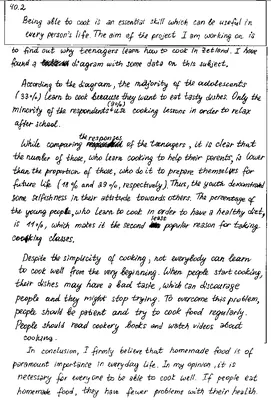 40.2
Being able to cook is an essential skill which can be useful in
every person's life. The aim of the project I am working on is
to find out why teenagers learn how to cook in Zetland. I have
found a diagram with some data on this subject.
According to the diagram, the majority of the adolescents
(33%) learn to cook because they want to eat tasty dishes. Only the
minority of the respondents (9%) use cooking lessons in order to relax
after school.
While comparing the responses of the teenagers, it is clear that
the number of those, who learn cooking to help their parents, is lower
than the proportion of those, who do it to prepare themselves for
future life (18% and 29%, respectively). Thus, the youth
some selfishness in their attitude towards others. The percentage of
the young people, who learn to cook in order to have a healthy diet,
is 11%, which makes it the second least popular reason for taking
cooking classes.
Despite the simplicity of cooking, not everybody can learn
to cook well from the very beginning. When people start cooking,
their dishes may have a bad taste, which can discourage
people and they might stop trying. To overcome this problem,
people should be patient and try to cook food regularly.
People should read cookery books and watch videos about
cooking.
In conclusion, I firmly believe that homemade food is of
paramount importance in everyday life. In my opinion, it is
necessary for everyone to be able to cook well. If people eat
homemade food, they have fewer problems with their health.